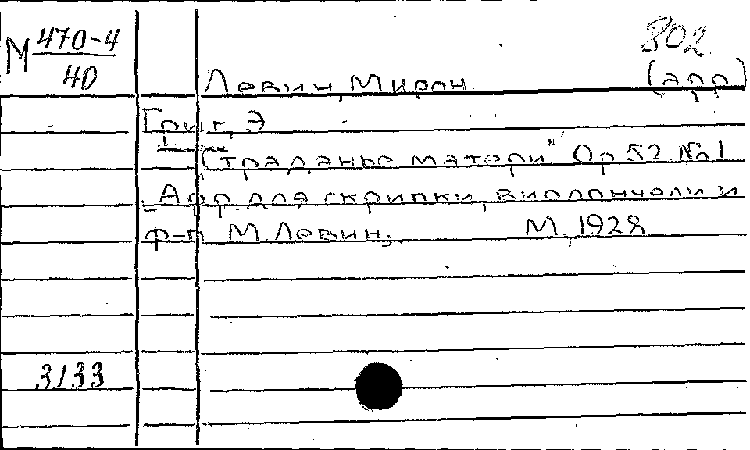 М 470-4
40
802
Левин, Мирон (арр)
Григ, Э
"Страданье матери" Ор 52 №1
Арр для скрипки, виолончели и
ф-п М. Левин. М, 1928
3133